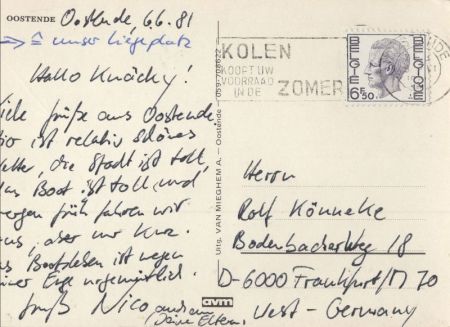 OOSTENDE Oostende, 6.6.81
⇒ ≙ unser Liegeplatz
Hallo Knöcky!
iele Grüße aus Oostende
ier ist relativ schönes
etter, die Stadt ist toll,
as Boot ist toll, und
orgen früh fahren wir
us, aber nur kurz.
as Bootsleben ist wegen
einer Enge ungemütlich.
Gruß Nico
und an Deine Eltern.
Uitg. VAN MIEGHEM A. – Oostende – 059-708622
avm
KOLEN
KOOPT UW
VOORRAAD
IN DE ZOMER
BELGIE
BELGIQUE
6F50
Herrn
Rolf Könneke
Bodenbacherweg 18
D-6000 Frankfurt/M 70
West-Germany